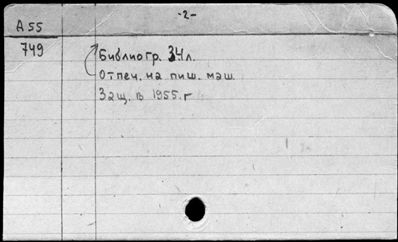 -2-
А55
749
Библиогр. 34 л.
Отпеч. на пиш. маш.
Защ. в 1955. г